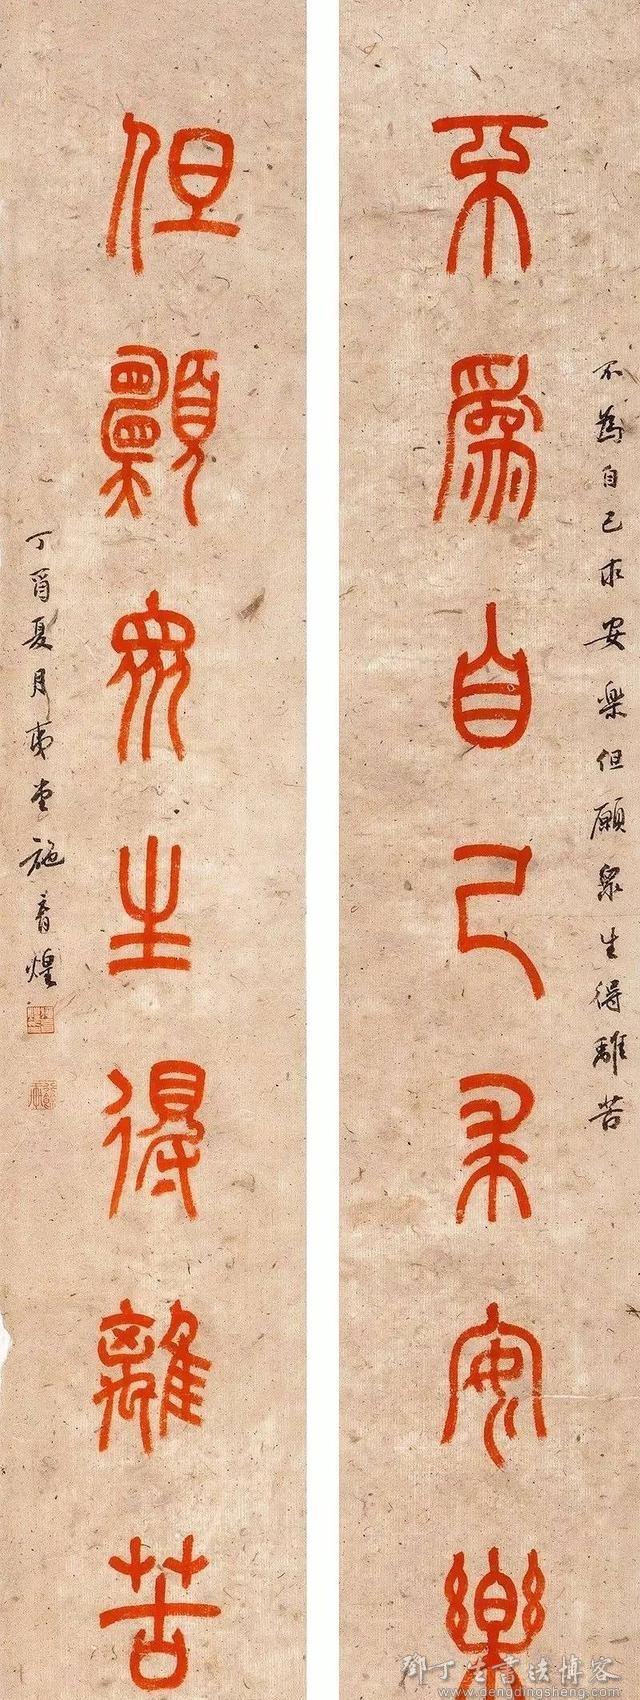 不爲自己求安樂
不為自己求安樂但願衆生得離苦
但願衆生得離苦
丁酉夏月夷堂施育煌
鄧丁生書法博客
www.dengdingsheng.com